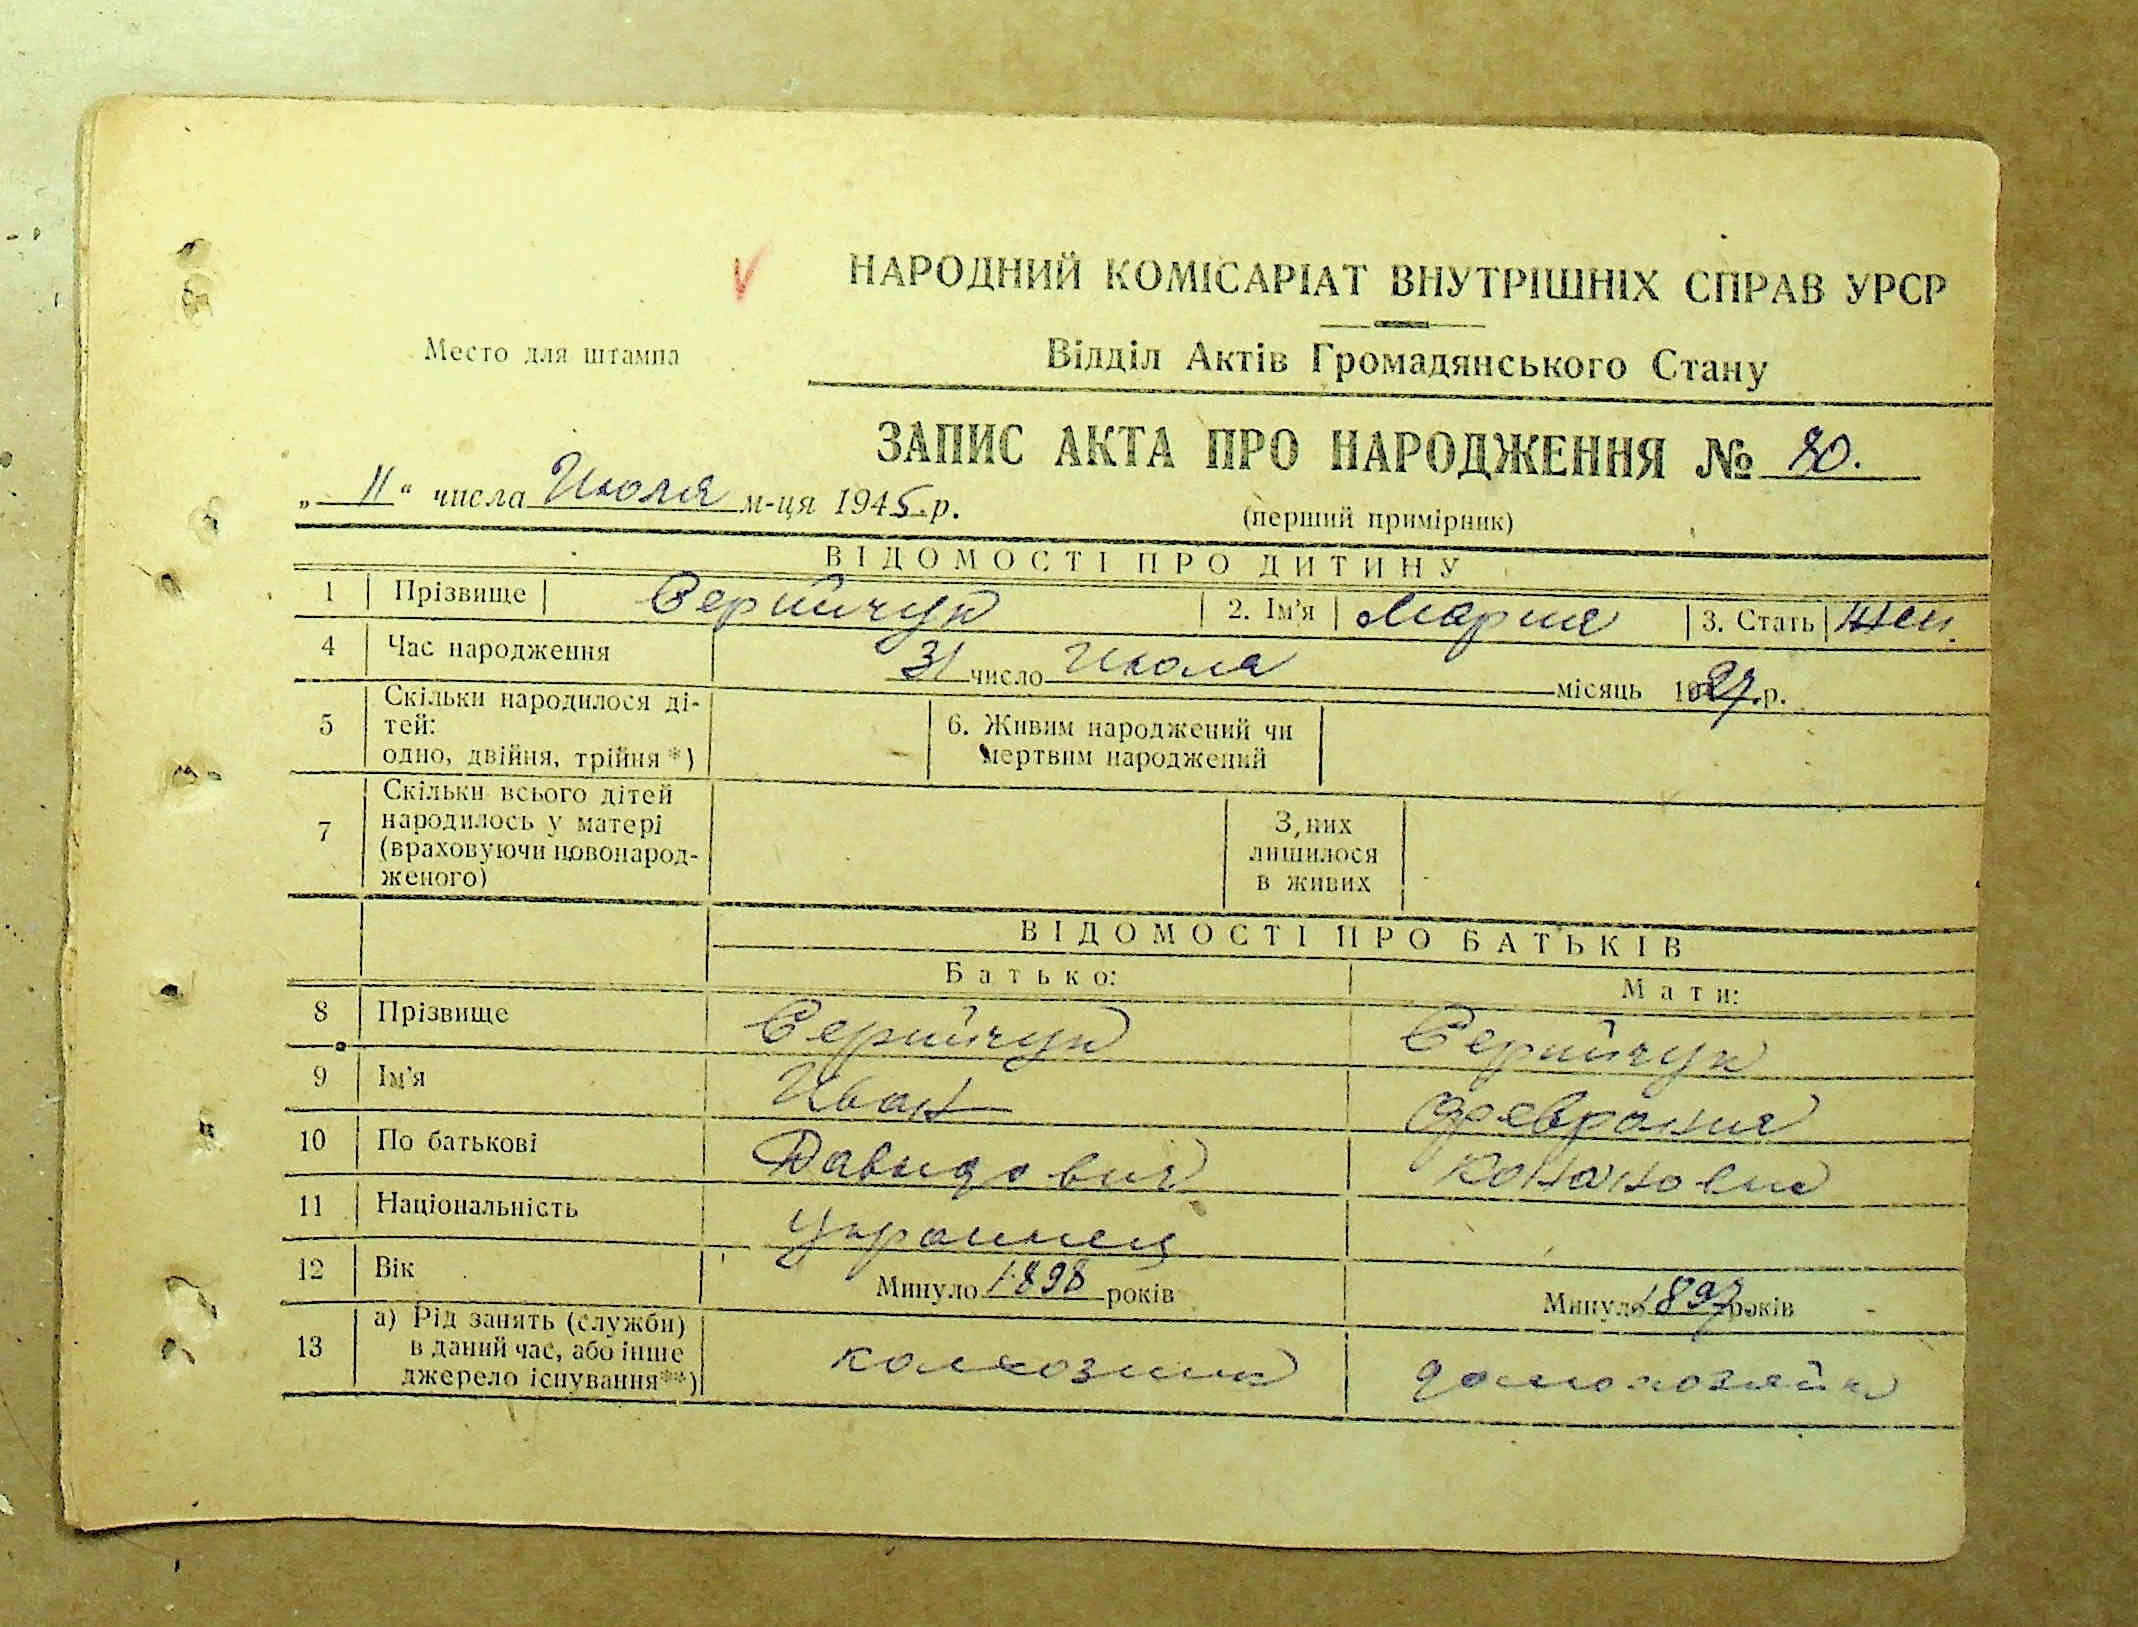 НАРОДНИЙ КОМІСАРІАТ ВНУТРІШНІХ СПРАВ УРСР
Место для штампа
Відділ Актів Громадянського Стану
ЗАПИС АКТА ПРО НАРОДЖЕННЯ № 80.
„ 11 “ числа Июля м-ця 1945 р.
(перший примірник)
ВІДОМОСТІ ПРО ДИТИНУ
1 Прізвище Серийчук 2. Ім'я Мария 3. Стать жен.
4 Час народження 31 число Июля місяць 1927 р.
5 Скільки народилося ді-
тей:
одно, двійня, трійня *)
6. Живим народжений чи
мертвим народжений
7 Скільки всього дітей
народилось у матері
(враховуючи новонарод-
женого)
З них
лишилося
в живих
ВІДОМОСТІ ПРО БАТЬКІВ
Батько: Мати:
8 Прізвище Серийчук Серийчук
9 Ім'я Иван
10 По батькові Давидович
11 Національність украинец
12 Вік Минуло 1898 років Минуло 1897 років
13 а) Рід занять (служби)
в даний час, або інше
джерело існування**)
колхозник домохозяйк